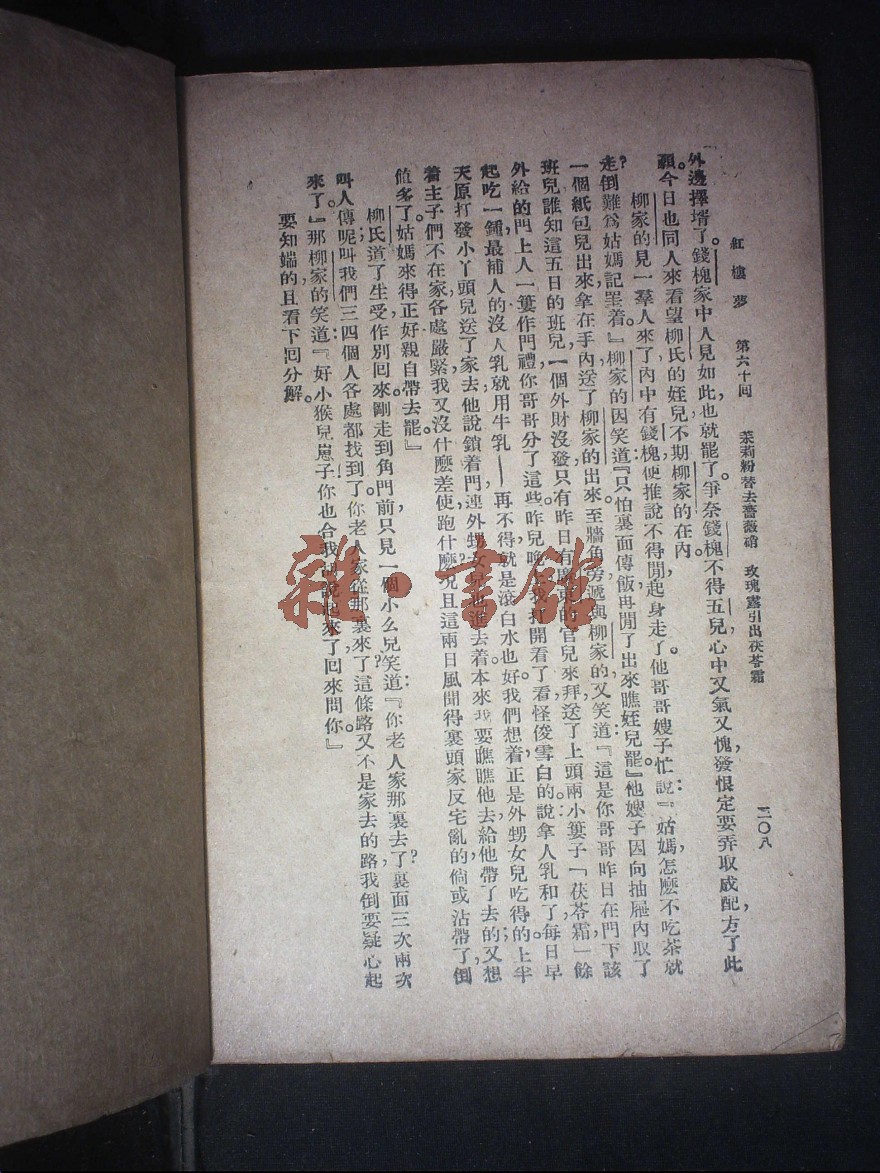 紅樓夢 第六十回 茉莉粉替去薔薇硝 玫瑰露引出茯苓霜 二〇八
外邊擇壻了。錢槐家中人見如此，也就罷了。爭奈錢槐不得五兒，心中又氣又愧，發恨定要弄取成配，方了此
願。今日也同人來看望柳氏的姪兒，不期柳家的在內。
柳家的見一羣人來了，內中有錢槐，便推說不得閒，起身走了。他哥哥嫂子忙說：『姑媽怎麼不吃茶就
走？倒難爲姑媽記罣着。』柳家的因笑道：『只怕裏面傳飯，再閒了，出來瞧姪兒罷。』他嫂子因向抽屜內取了
一個紙包兒出來，拿在手內，送了柳家的出來，至牆角旁，遞與柳家的，又笑道：『這是你哥哥昨日在門下該
班兒，誰知這五日的班兒，一個外財沒發，只有昨日有廣東的官兒來拜，送了上頭兩小簍子「茯苓霜」，餘
外給的門上人一簍作門禮，你哥哥分了這些。昨兒晚上我打開看了看，怪俊，雪白的。說拿人乳和了，每日早
起吃一鍾，最補人的；沒人乳就用牛乳——再不得就是滾白水也好。我們想着，正是外甥女兒吃得的；上半
天原打發小丫頭兒送了家去，他說鎖着門，連外甥女兒也進去着。本來我要瞧瞧他去，給他帶了去的，又想
着主子們不在家，各處嚴緊，我又沒什麼差使，跑什麼？況且這兩日風聞得裏頭家反宅亂的，倘或沾帶了，倒
值多了。姑媽來得正好，親自帶去罷。』
柳氏道了生受，作別回來。剛走到角門前，只見一個小么兒笑道：『你老人家那裏去了？裏面三次兩次
叫人傳呢，叫我們三四個人各處都找到了。你老人家從那裏來了？這條路又不是家去的路，我倒要疑心起
來了。』那柳家的笑道：『好小猴兒崽子！你也合我說起來了，回來問你。』
要知端的，且看下回分解。
雜·書館